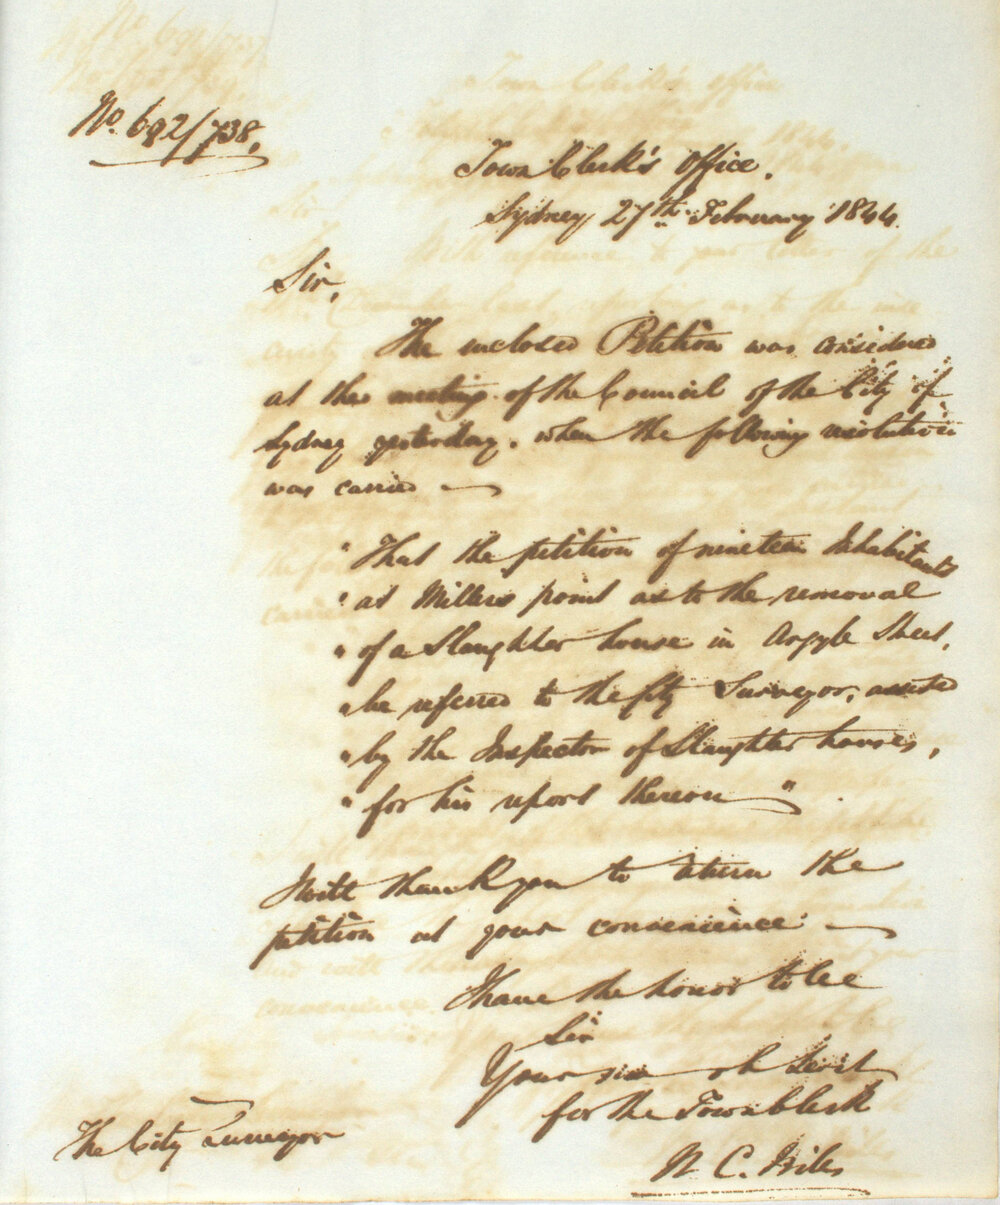 No. 692/738.
Town Clerk's Office.
Sydney 27th February 1844.
Sir,
The inclosed Petition was considered
at the meeting of the Council of the City of
Sydney yesterday, when the following resolution
was carried —
" That the petition of nineteen Inhabitants
" at Millers point as to the removal
" of a Slaughter house in Argyle Street,
" be referred to the City Surveyor, assisted
" by the Inspector of Slaughter houses,
" for his report thereon "
I will thank you to return the
petition at your convenience —
I have the honor to be
Sir
Your ob Servt
for the Town Clerk
The City Surveyor
C.